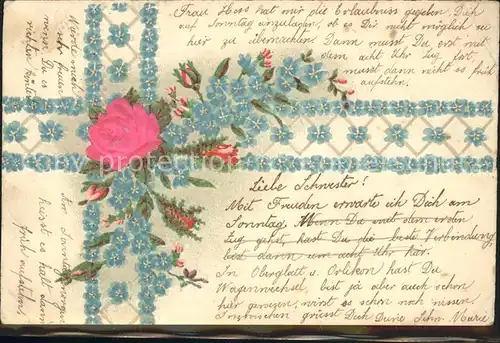 Frau Hess hat mir die Erlaubniss gegeben, Dich
auf Sonntag einzuladen, ob es Dir nicht möglich sei
hier zu übernachten. Dann musst Du erst mit
dem acht Uhr Zug fort,
musst dann nicht so früh
aufstehen.
Würde mich
sehr freuen
wenn Du es
richten könntest
Liebe Schwester!
Mit Freuden erwarte ich Dich am
Sonntag. Wenn Du mit dem ersten
Zug gehst, hast Du die beste Verbindung
bist dann um acht Uhr hier.
In Oberglatt u. Örlikon hast Du
Wagenwechsel, bist ja aber auch schon
hier gewesen, wirst es schon noch wissen.
Inzwischen grüsst Dich Deine Schw. Marie
Am Sonntag morgen
müsst es halt dann
früh aufstehen.